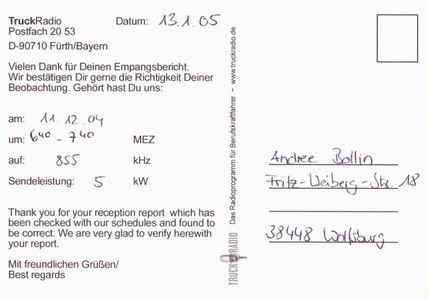 TruckRadio
Datum: 13.1.05
Postfach 20 53
D-90710 Fürth/Bayern
Vielen Dank für Deinen Empangsbericht.
Wir bestätigen Dir gerne die Richtigkeit Deiner
Beobachtung. Gehört hast Du uns:
am: 11.12.04
um: 6⁴⁰ - 7⁴⁰ MEZ
auf: 855 kHz
Sendeleistung: 5 kW
Thank you for your reception report which has
been checked with our schedules and found to
be correct. We are very glad to verify herewith
your report.
Mit freundlichen Grüßen/
Best regards
TRUCK RADIO Das Radioprogramm für Berufskraftfahrer ~ www.truckradio.de
Andree Bollin
Fritz-Weiberg-Str. 18
38448 Wolfsburg